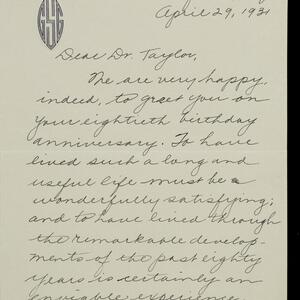 GSG
April 29, 1931
Dear Dr. Taylor,
We are very happy,
indeed, to greet you on
your eightieth birthday
anniversary. To have
lived such a long and
useful life must be a
wonderfully satisfying;
and to have lived through
the remarkable develop-
ments of the past eighty
years is certainly an
enviable experience.